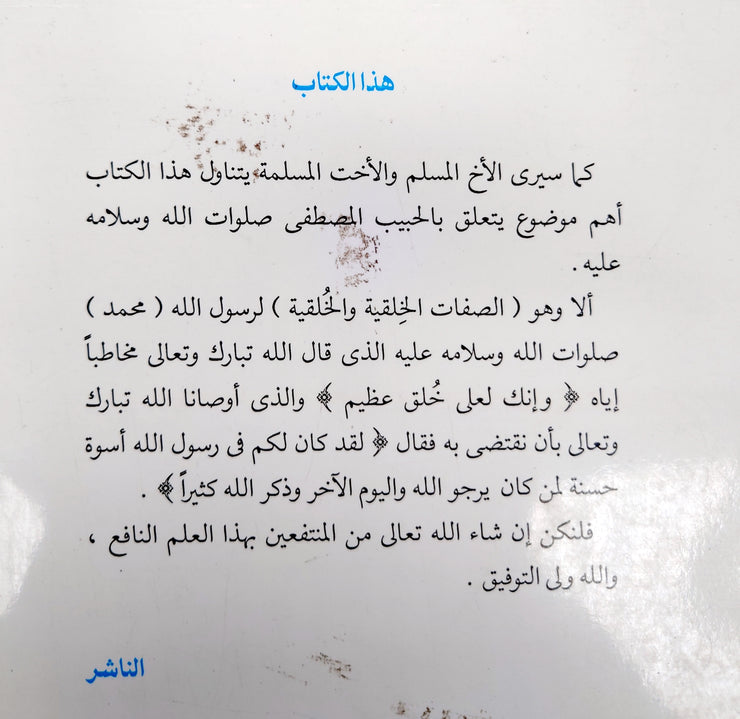 هذا الكتاب
كما سيرى الأخ المسلم والأخت المسلمة يتناول هذا الكتاب
أهم موضوع يتعلق بالحبيب المصطفى صلوات الله وسلامه
عليه .
ألا وهو ( الصفات الخِلقية والخُلقية ) لرسول الله ( محمد )
صلوات الله وسلامه عليه الذى قال الله تبارك وتعالى مخاطباً
إياه ﴿ وإنك لعلى خُلق عظيم ﴾ والذى أوصانا الله تبارك
وتعالى بأن نقتضى به فقال ﴿ لقد كان لكم فى رسول الله أسوة
حسنة لمن كان يرجو الله واليوم الآخر وذكر الله كثيراً ﴾ .
فلنكن إن شاء الله تعالى من المنتفعين بهذا العلم النافع ،
والله ولى التوفيق .
الناشر